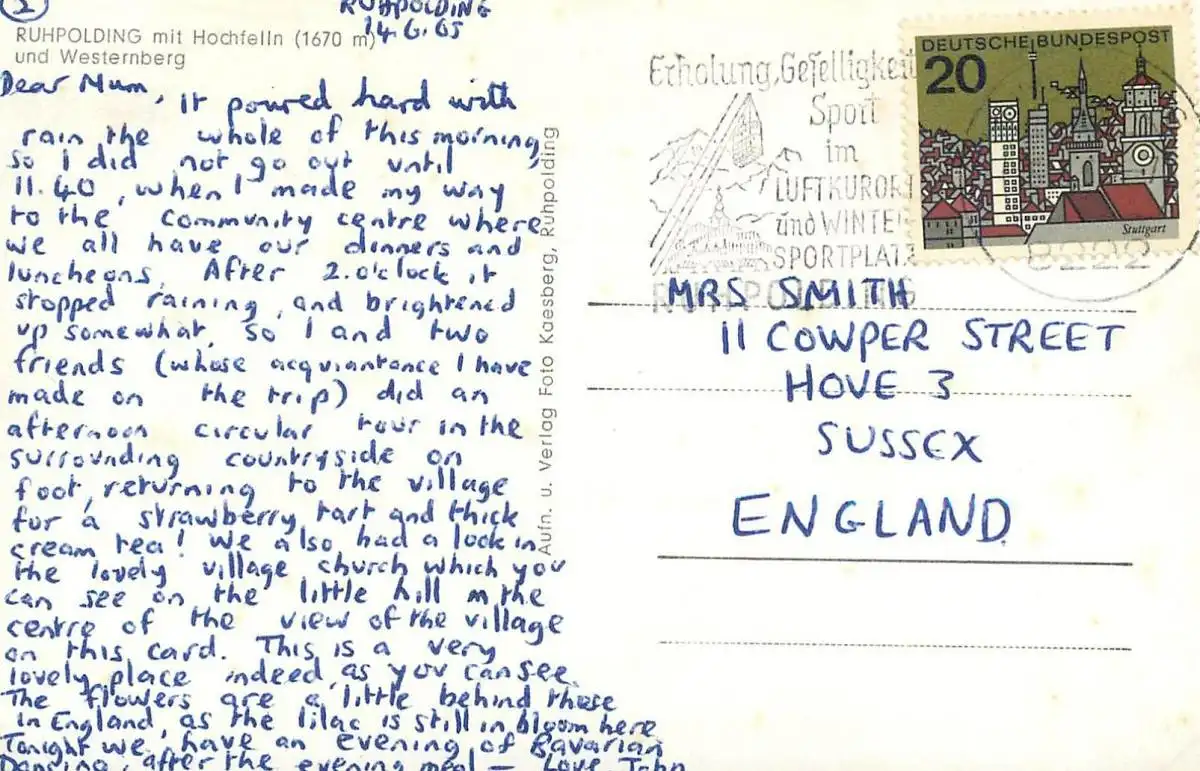 2
RUHPOLDING
14.6.65
RUHPOLDING mit Hochfelln (1670 m)
und Westernberg
Dear Mum, it poured hard with
rain the whole of this morning,
so I did not go out until
11.40, when I made my way
to the community centre where
we all have our dinners and
luncheons. After 2.o'clock it
stopped raining, and brightened
up somewhat, so I and two
friends (whose acquiantance I have
made on the trip) did an
afternoon circular tour in the
surrounding countryside on
foot, returning to the village
for a strawberry tart and thick
cream tea! We also had a look in
the lovely village church which you
can see on the little hill in the
centre of the view of the village
on this card. This is a very
lovely place indeed, as you can see.
The flowers are a little behind those
in England, as the lilac is still in bloom here
Tonight we have an evening of Bavarian
Dancing, after the evening meal — Love, John
Aufn. u. Verlag Foto Kaesberg, Ruhpolding
Erholung, Geselligkeit
Sport
im
LUFTKURORT
und WINTER-
SPORTPLATZ
RUHPOLDING
DEUTSCHE BUNDESPOST
20
Stuttgart
8222
MRS SMITH
11 COWPER STREET
HOVE 3
SUSSEX
ENGLAND